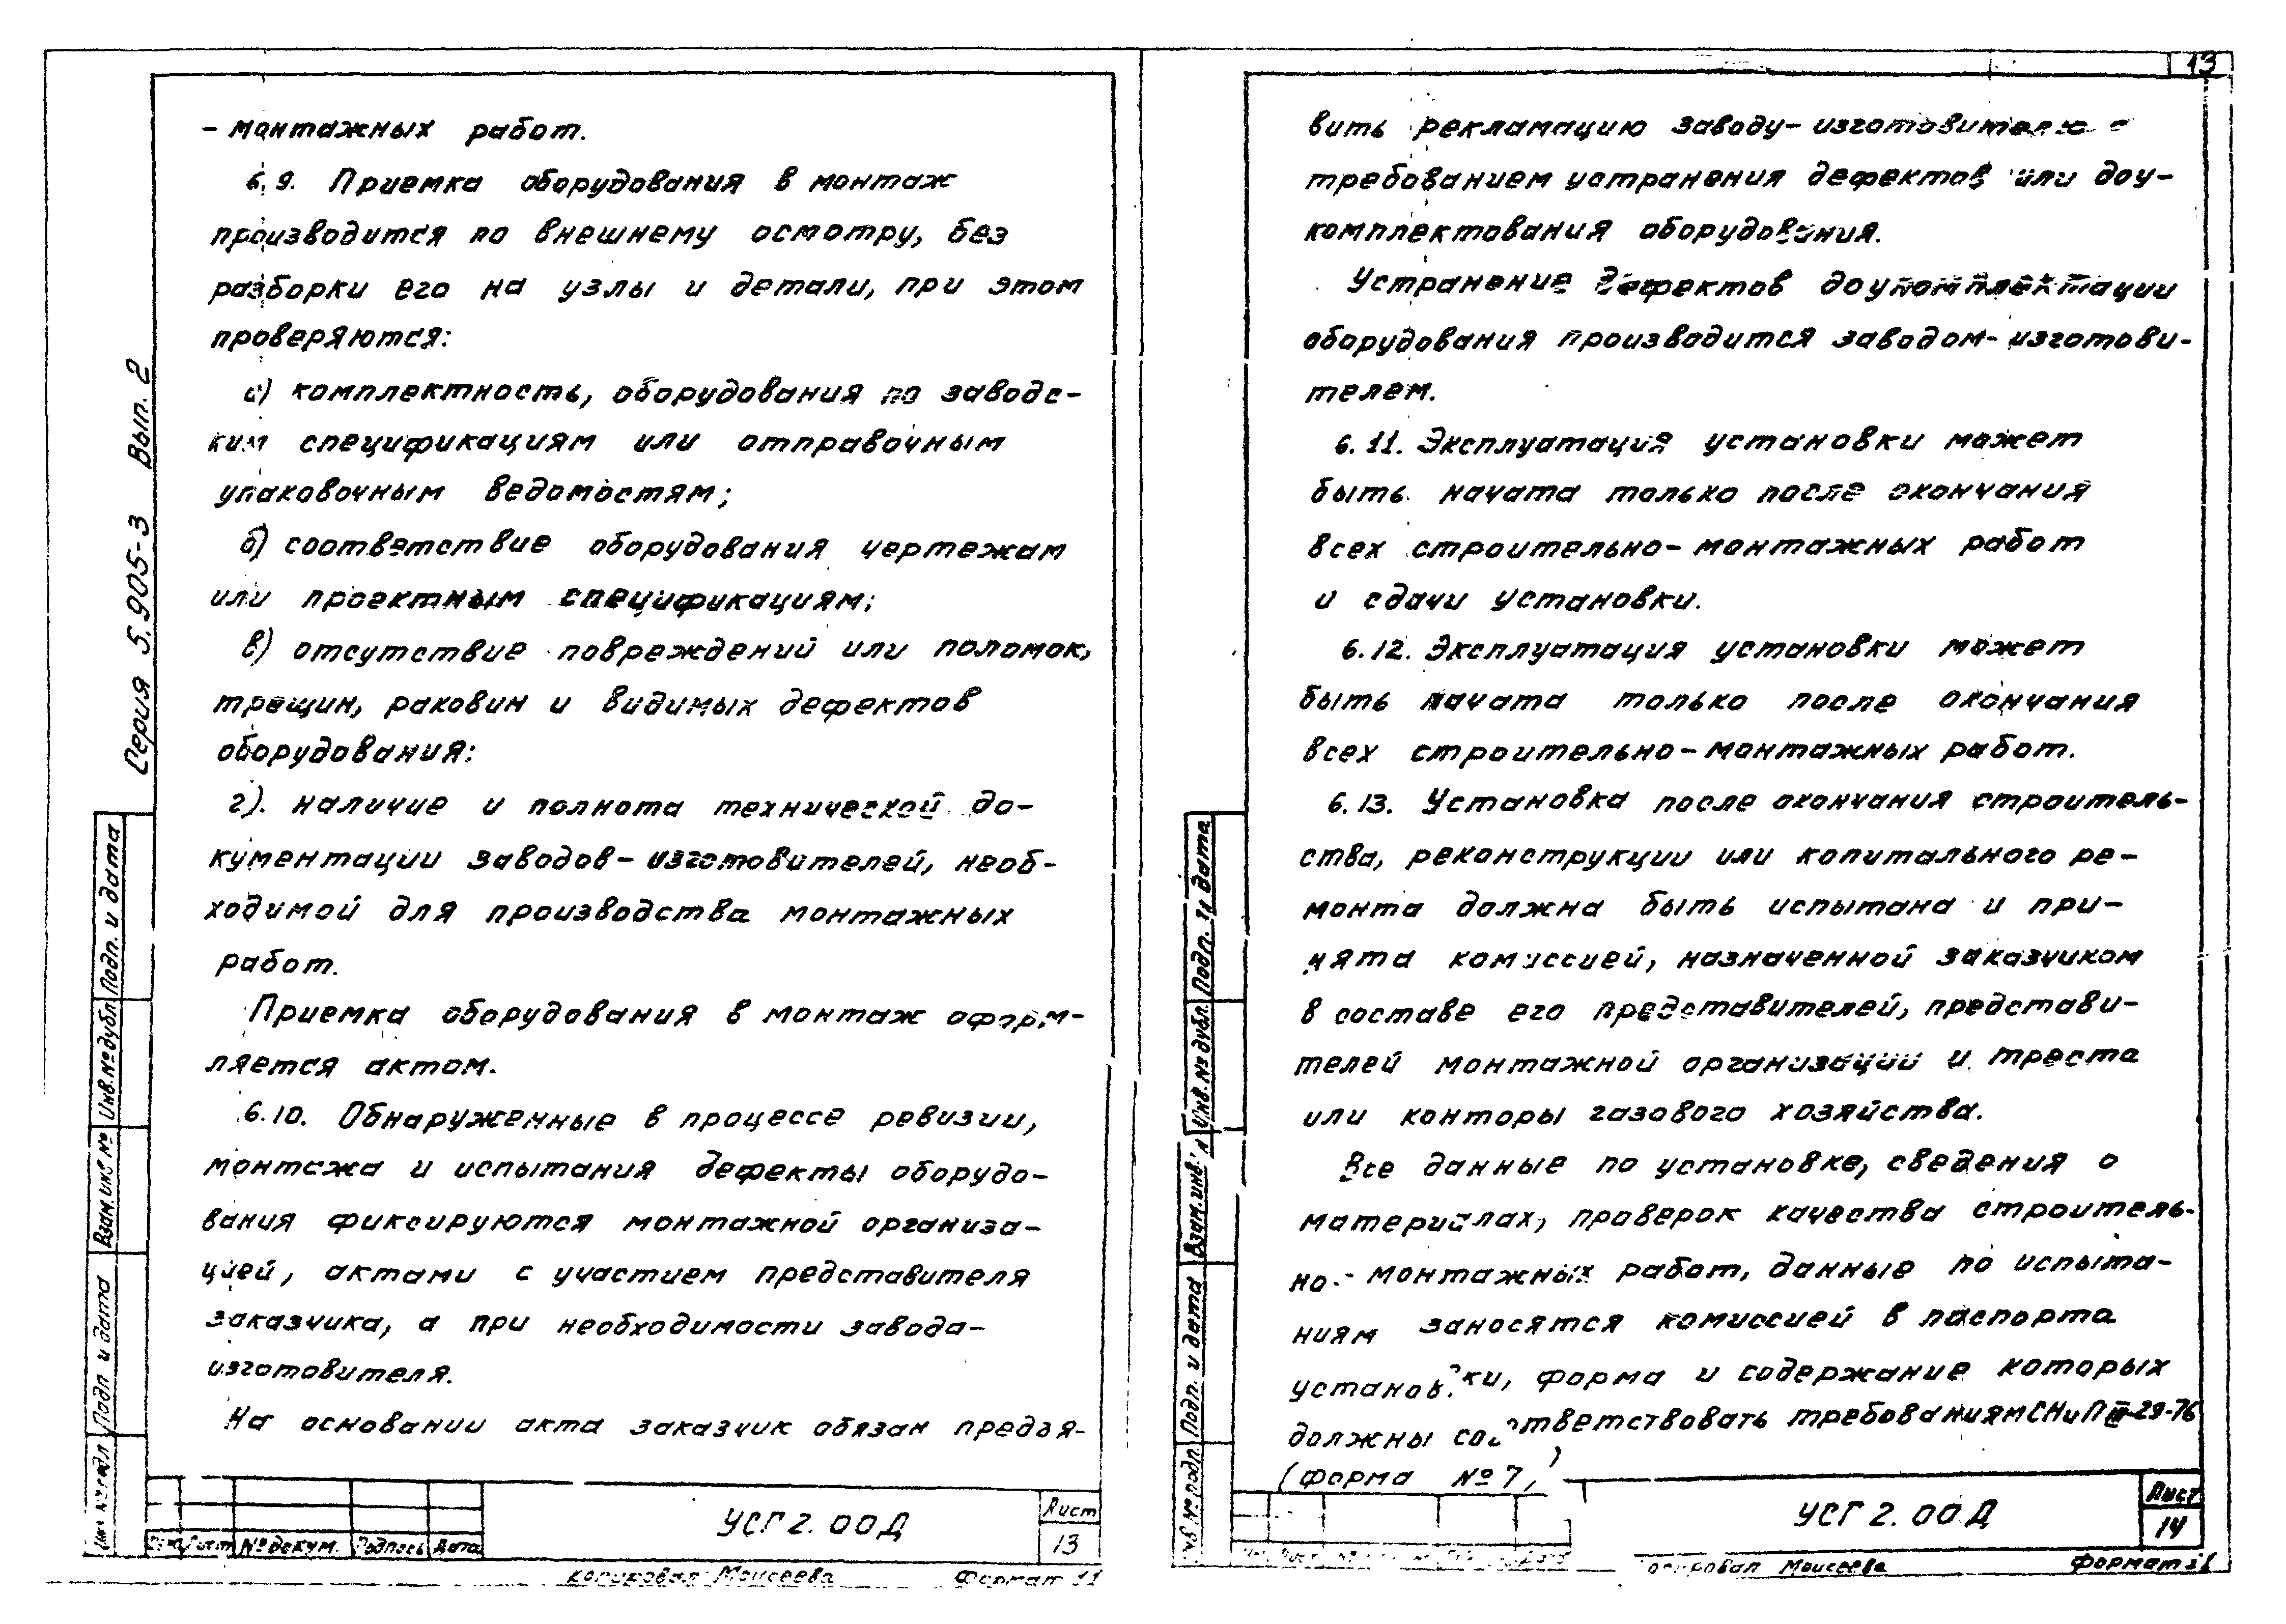 - монтажных работ.
6.9. Приемка оборудования в монтаж
производится по внешнему осмотру, без
разборки его на узлы и детали, при этом
проверяются:
а) комплектность, оборудования по заводс-
ким спецификациям или отправочным
упаковочным ведомостям;
б) соответствие оборудования чертежам
или проектным спецификациям;
в) отсутствие повреждений или поломок,
трещин, раковин и видимых дефектов
оборудования:
г). наличие и полнота технической до-
кументации заводов-изготовителей, необ-
ходимой для производства монтажных
работ.
Приемка оборудования в монтаж оформ-
ляется актом.
6.10. Обнаруженные в процессе ревизии,
монтажа и испытания дефекты оборудо-
вания фиксируются монтажной организа-
цией, актами с участием представителя
заказчика, а при необходимости завода-
изготовителя.
На основании акта заказчик обязан предъя-
Серия 5.905-3 Вып. 2
Подп. и дата
Инв.№дубл.
Взам.инв №
Подп и дата
Инв №подл
Лист №докум. Подпись Дата
УСГ 2.00Д
Лист
13
Копировал Моисеева
Формат 11
13
вить рекламацию заводу-изготовителю с
требованием устранения дефектов или доу-
комплектования оборудования.
Устранение дефектов доукомплектации
оборудования производится заводом-изготови-
телем.
6.11. Эксплуатация установки может
быть начата только после окончания
всех строительно-монтажных работ
и сдачи установки.
6.12. Эксплуатация установки может
быть начата только после окончания
всех строительно-монтажных работ.
6.13. Установка после окончания строитель-
ства, реконструкции или капитального ре-
монта должна быть испытана и при-
нята комиссией, назначенной заказчиком
в составе его представителей, представи-
телей монтажной организации и треста
или конторы газового хозяйства.
Все данные по установке, сведения о
материалах, проверок качества строитель-
но-монтажных работ, данные по испыта-
ниям заносятся комиссией в паспорта
установки, форма и содержание которых
должны соответствовать требованиям СНиП III-29-76
(форма № 7)
Подп. и дата
Инв.№ дубл.
Взам.инв.
Подп. и дата
Инв № подл.
УСГ 2.00Д
Лист
14
Копировал Моисеева
Формат 11